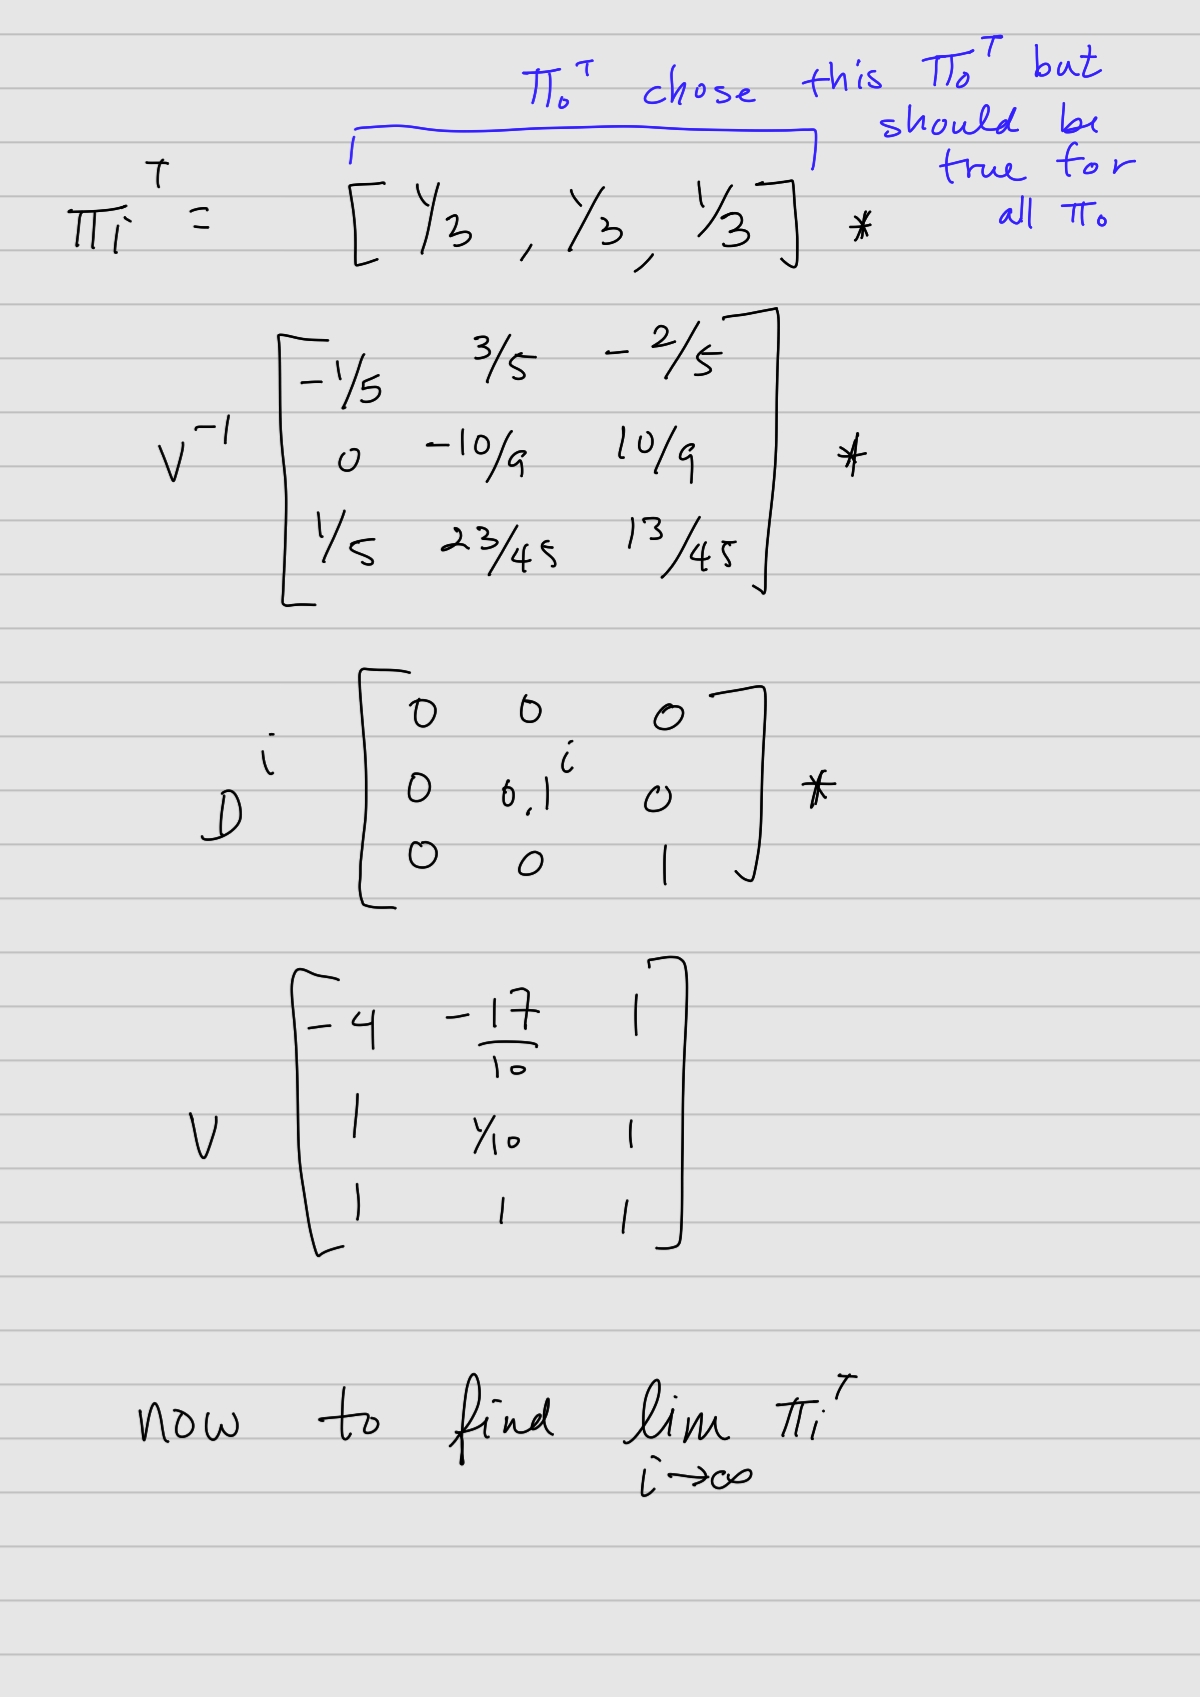 π₀ᵀ chose this π₀ᵀ but
should be
true for
all π₀
πᵢᵀ = [ 1/3 , 1/3 , 1/3 ] *
-1/5 3/5 - 2/5
V⁻¹ 0 -10/9 10/9 *
1/5 23/45 13/45
0 0 0
Dⁱ 0 0.1ⁱ 0 *
0 0 1
-4 -17/10 1
V 1 1/10 1
1 1 1
now to find lim πᵢᵀ
i→∞